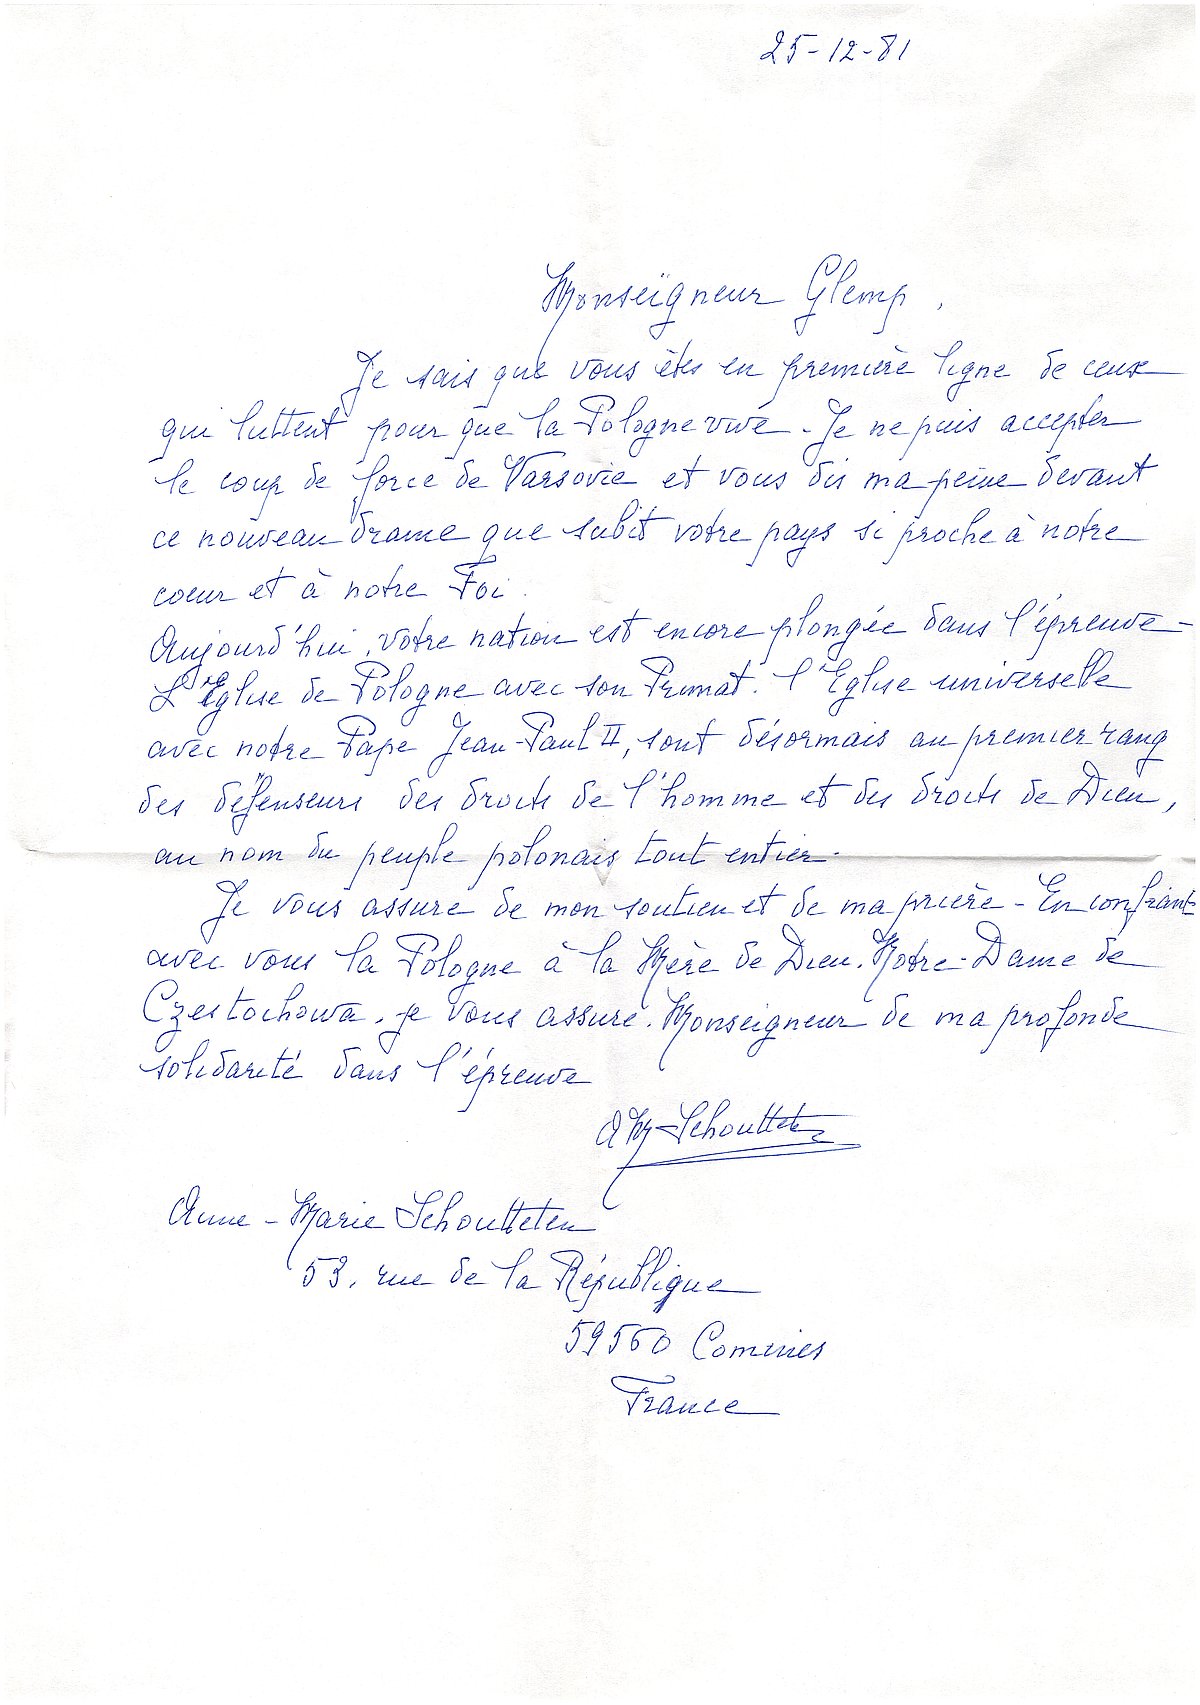 25-12-81
Monseigneur Glemp,
Je sais que vous êtes en première ligne de ceux
qui luttent pour que la Pologne vive - Je ne puis accepter
le coup de force de Varsovie et vous dis ma peine devant
ce nouveau drame que subit votre pays si proche à notre
coeur et à notre Foi.
Aujourd'hui, votre nation est encore plongée dans l'épreuve -
L'Eglise de Pologne avec son Primat. l'Eglise universelle
avec notre Pape Jean-Paul II, sont désormais au premier rang
des défenseurs des droits de l'homme et des droits de Dieu,
au nom du peuple polonais tout entier.
Je vous assure de mon soutien et de ma prière - En confiant
avec vous la Pologne à la Mère de Dieu. Notre-Dame de
Czestochowa, je vous assure. Monseigneur de ma profonde
solidarité dans l'épreuve
AM Schoutteten
Anne-Marie Schoutteten
53, rue de la République
59560 Comines
France